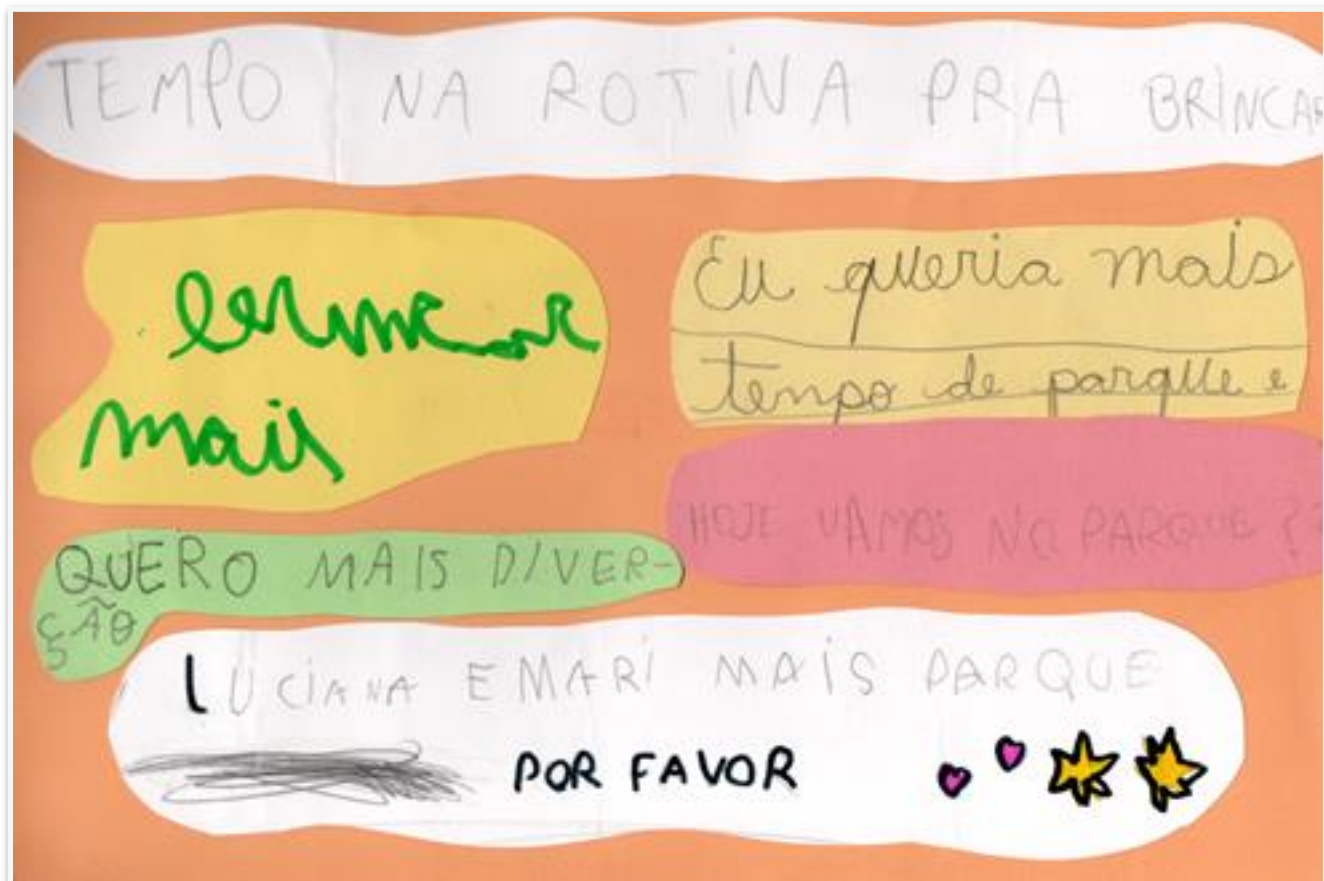 TEMPO NA ROTINA PRA BRINCAR
brincar
mais
Eu queria mais
tempo de parque e
HOJE VAMOS NO PARQUE ?
QUERO MAIS DIVER-
ÇÃO
LUCIANA E MARI MAIS PARQUE
POR FAVOR